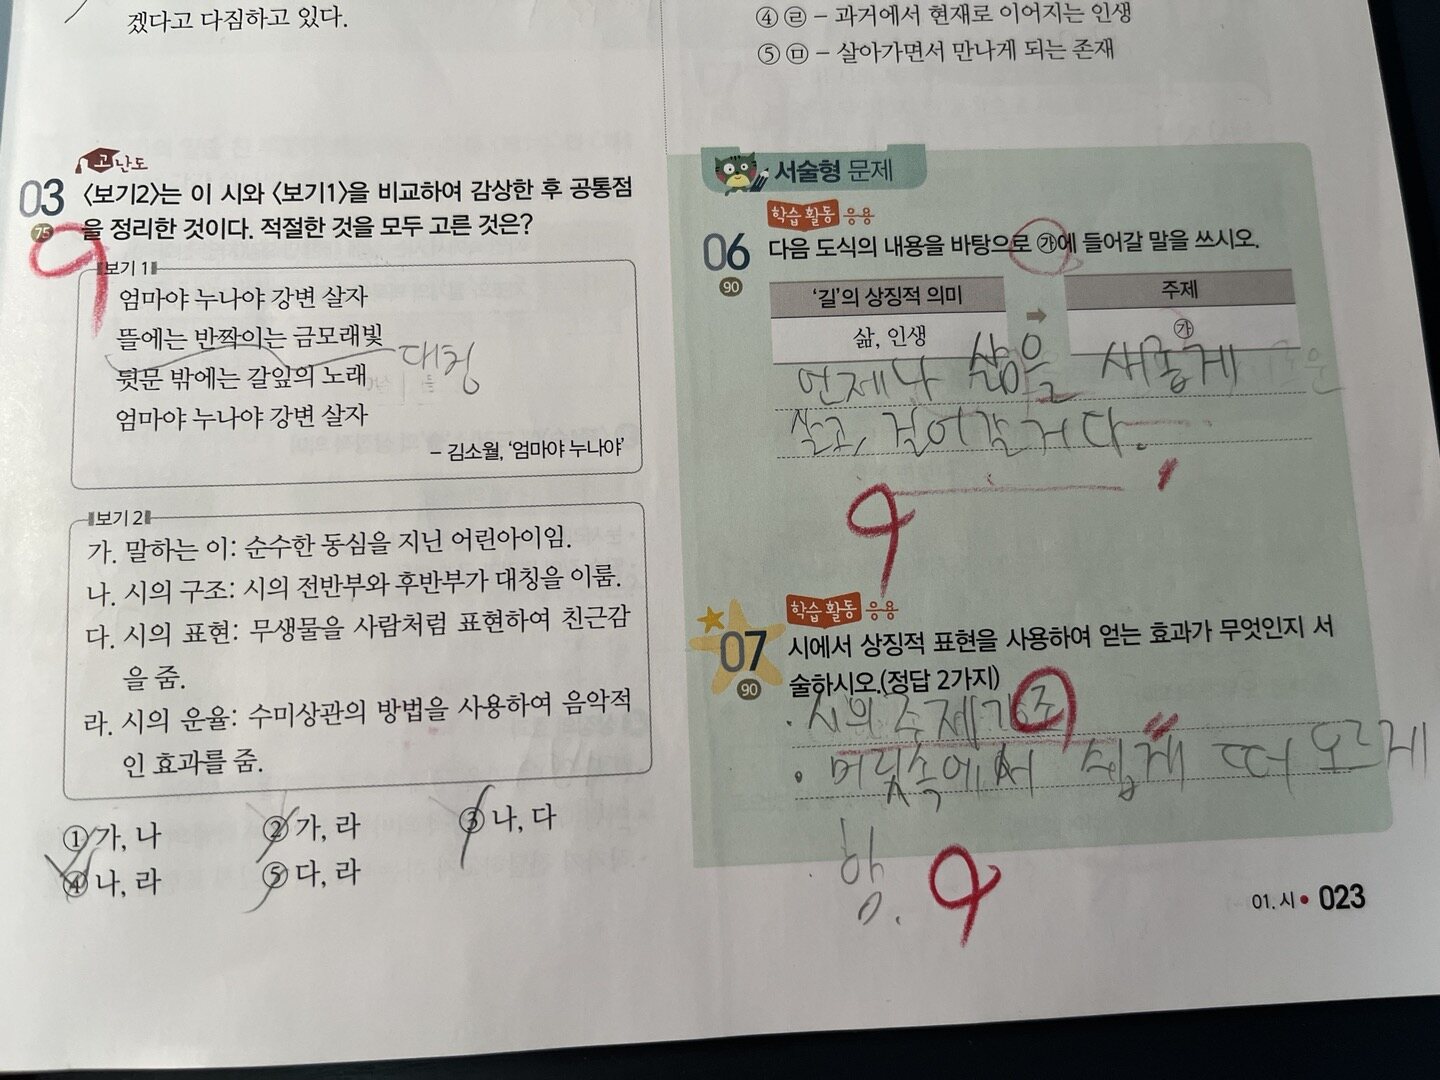 겠다고 다짐하고 있다.
고난도
03 <보기2>는 이 시와 <보기1>을 비교하여 감상한 후 공통점
75 을 정리한 것이다. 적절한 것을 모두 고른 것은?
보기 1
엄마야 누나야 강변 살자
뜰에는 반짝이는 금모래빛
뒷문 밖에는 갈잎의 노래
대칭
엄마야 누나야 강변 살자
- 김소월, '엄마야 누나야'
보기 2
가. 말하는 이: 순수한 동심을 지닌 어린아이임.
나. 시의 구조: 시의 전반부와 후반부가 대칭을 이룸.
다. 시의 표현: 무생물을 사람처럼 표현하여 친근감
을 줌.
라. 시의 운율: 수미상관의 방법을 사용하여 음악적
인 효과를 줌.
① 가, 나 ② 가, 라 ③ 나, 다
④ 나, 라 ⑤ 다, 라
④ ㉣ – 과거에서 현재로 이어지는 인생
⑤ ㉤ – 살아가면서 만나게 되는 존재
서술형 문제
학습 활동 응용
06 다음 도식의 내용을 바탕으로 ㉮에 들어갈 말을 쓰시오.
90
'길'의 상징적 의미 → 주제
삶, 인생 ㉮
언제나 삶을 새롭게
살고, 걸어갈 거다.
학습 활동 응용
07 시에서 상징적 표현을 사용하여 얻는 효과가 무엇인지 서
90 술하시오.(정답 2가지)
· 시의 주제 강조
· 머릿속에서 쉽게 떠오르게
함.
01. 시 • 023